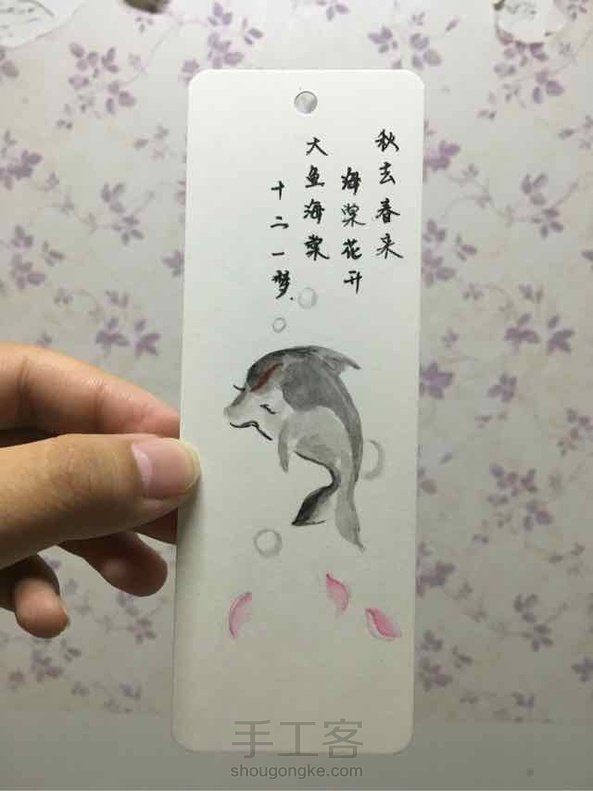 秋去春来
海棠花开
大鱼海棠
十二一梦
手工客
shougongke.com